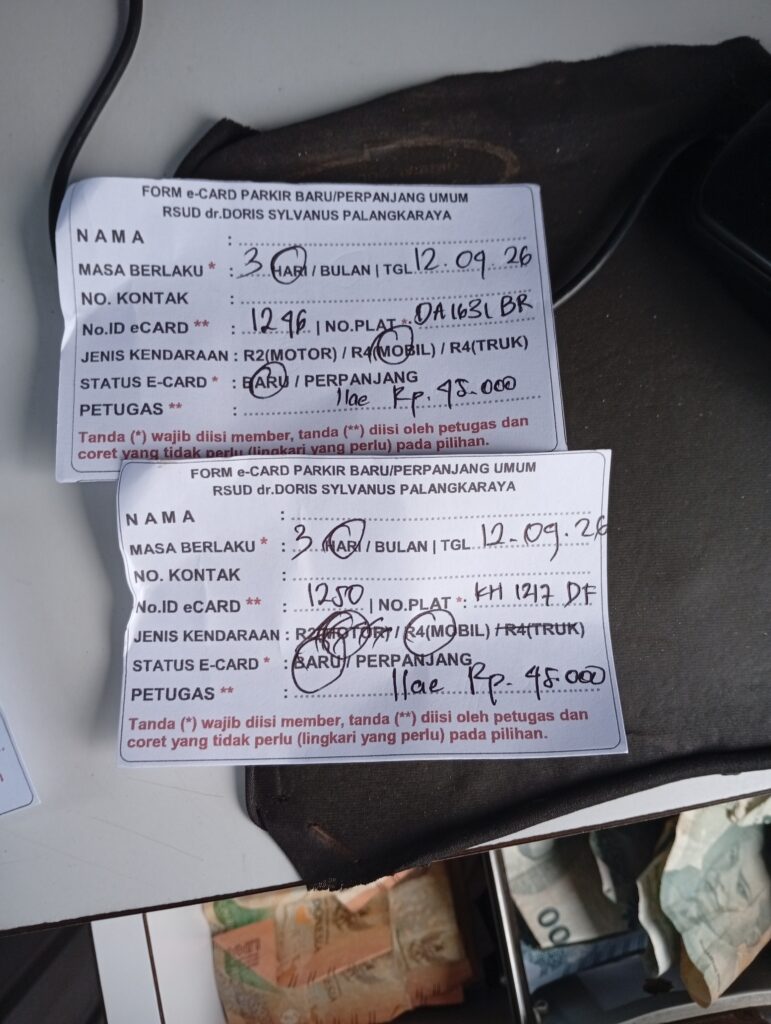 FORM e-CARD PARKIR BARU/PERPANJANG UMUM
RSUD dr.DORIS SYLVANUS PALANGKARAYA
N A M A :
MASA BERLAKU * : 3 HARI / BULAN | TGL 12.09.26
NO. KONTAK :
No.ID eCARD ** : 1296 | NO.PLAT *: DA 1631 BR
JENIS KENDARAAN : R2(MOTOR) / R4(MOBIL) / R4(TRUK)
STATUS E-CARD * : BARU / PERPANJANG
PETUGAS ** : Ilae Rp. 45.000
Tanda (*) wajib diisi member, tanda (**) diisi oleh petugas dan
coret yang tidak perlu (lingkari yang perlu) pada pilihan.
FORM e-CARD PARKIR BARU/PERPANJANG UMUM
RSUD dr.DORIS SYLVANUS PALANGKARAYA
N A M A :
MASA BERLAKU * : 3 HARI / BULAN | TGL 12.09.26
NO. KONTAK :
No.ID eCARD ** : 1250 | NO.PLAT *: KH 1217 DF
JENIS KENDARAAN : R2(MOTOR) / R4(MOBIL) / R4(TRUK)
STATUS E-CARD * : BARU / PERPANJANG
PETUGAS ** : Ilae Rp. 45.000
Tanda (*) wajib diisi member, tanda (**) diisi oleh petugas dan
coret yang tidak perlu (lingkari yang perlu) pada pilihan.